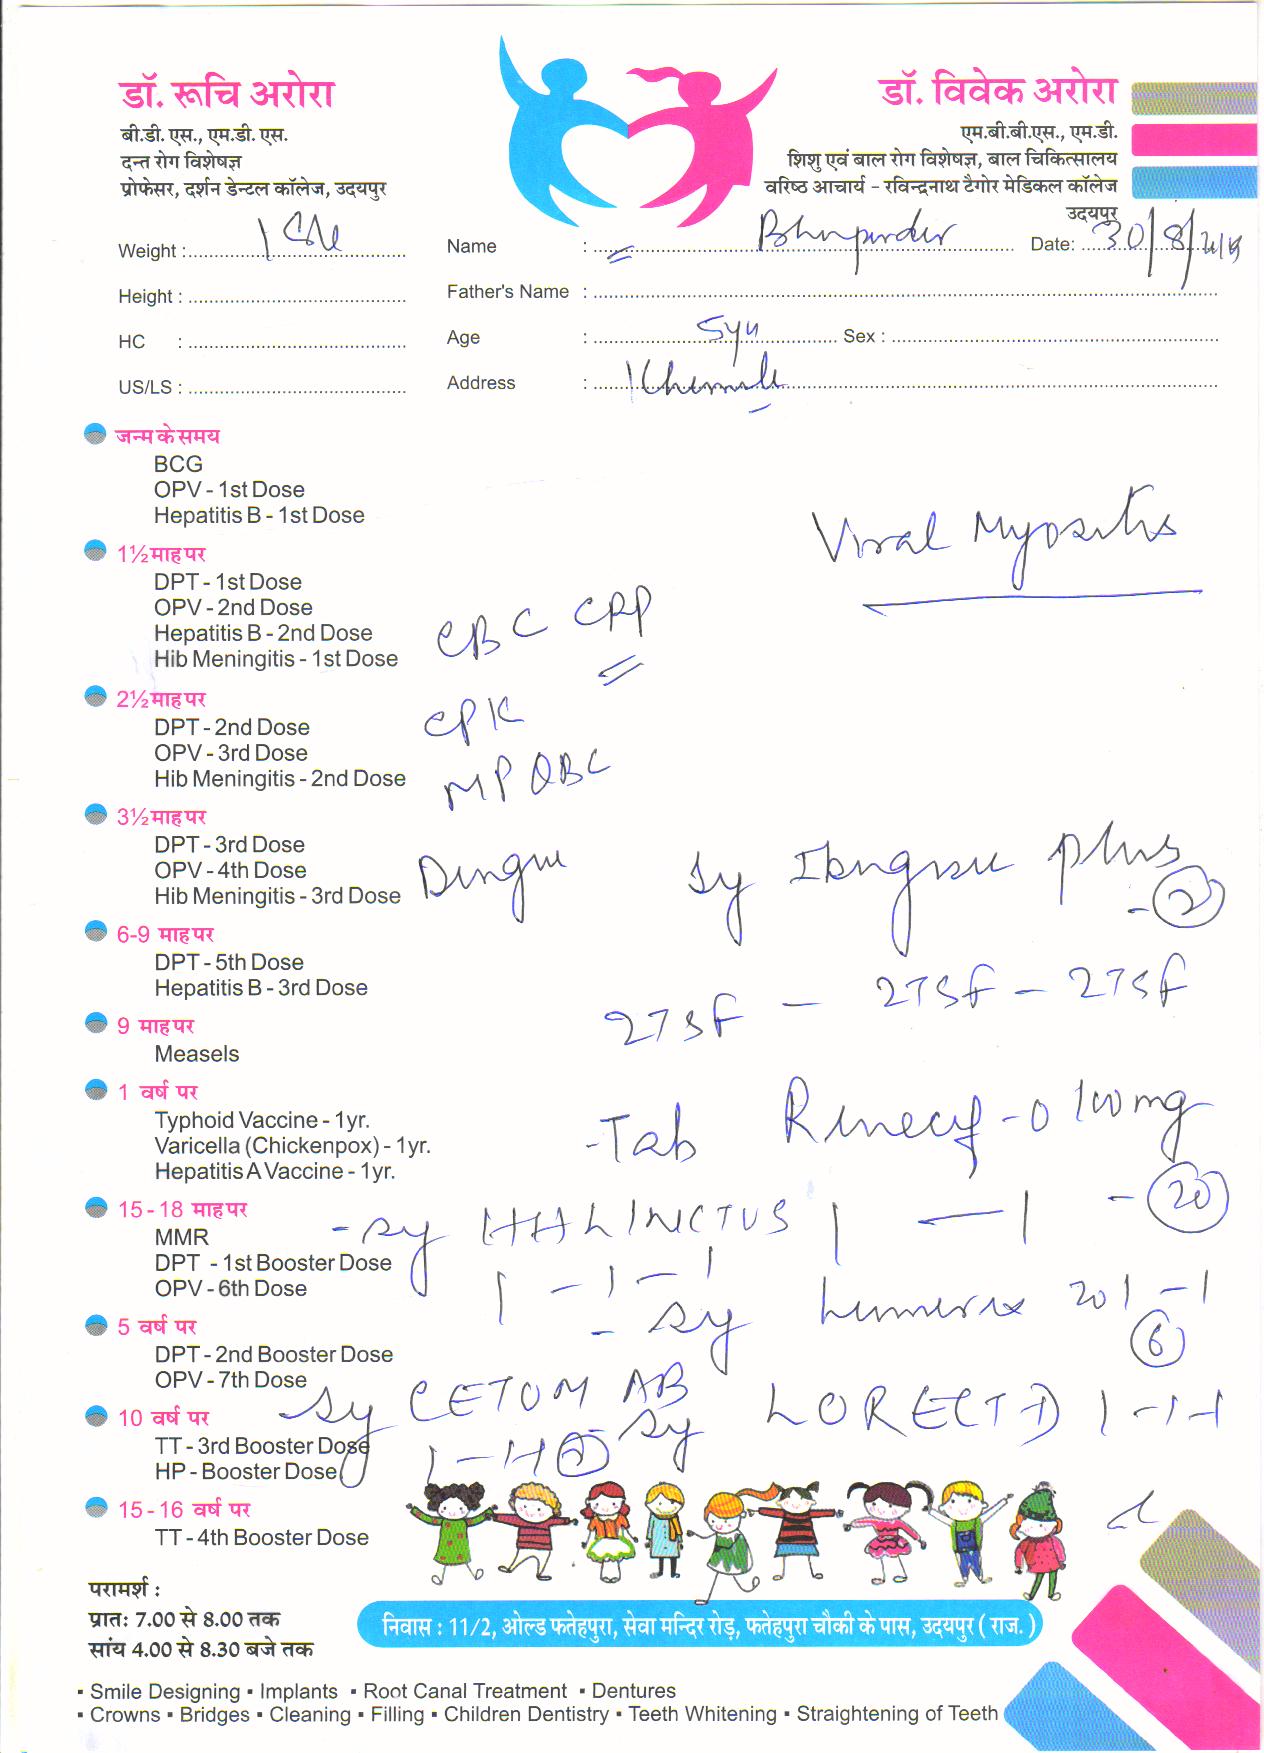 डॉ. रूचि अरोरा
बी.डी. एस., एम.डी. एस.
दन्त रोग विशेषज्ञ
प्रोफेसर, दर्शन डेन्टल कॉलेज, उदयपुर
डॉ. विवेक अरोरा
एम.बी.बी.एस., एम.डी.
शिशु एवं बाल रोग विशेषज्ञ, बाल चिकित्सालय
वरिष्ठ आचार्य - रविन्द्रनाथ टैगोर मेडिकल कॉलेज
उदयपुर
Weight : Name : Date: 30/8/
Height : Father's Name :
HC : Age : 5yr Sex :
US/LS : Address :
जन्म के समय
BCG
OPV - 1st Dose
Hepatitis B - 1st Dose
Viral Myositis
1½ माह पर
DPT - 1st Dose
OPV - 2nd Dose
Hepatitis B - 2nd Dose
Hib Meningitis - 1st Dose
CBC CRP
2½ माह पर
DPT - 2nd Dose
OPV - 3rd Dose
Hib Meningitis - 2nd Dose
CPK
MP QBC
3½ माह पर
DPT - 3rd Dose
OPV - 4th Dose
Hib Meningitis - 3rd Dose
Sy plus
- 2
6-9 माह पर
DPT - 5th Dose
Hepatitis B - 3rd Dose
27SF - 27SF - 27SF
9 माह पर
Measels
1 वर्ष पर
Typhoid Vaccine - 1yr.
Varicella (Chickenpox) - 1yr.
Hepatitis A Vaccine - 1yr.
- Tab - O 100mg
- 20
15-18 माह पर
MMR
DPT - 1st Booster Dose
OPV - 6th Dose
- Sy 1 - 1
1 - 1 - 1
- Sy 20 1 - 1
6
5 वर्ष पर
DPT - 2nd Booster Dose
OPV - 7th Dose
Sy CETOM AB
Sy 1-1-1
10 वर्ष पर
TT - 3rd Booster Dose
HP - Booster Dose
15-16 वर्ष पर
TT - 4th Booster Dose
परामर्श :
प्रातः 7.00 से 8.00 तक
सांय 4.00 से 8.30 बजे तक
निवास : 11/2, ओल्ड फतेहपुरा, सेवा मन्दिर रोड़, फतेहपुरा चौकी के पास, उदयपुर ( राज. )
▪ Smile Designing ▪ Implants ▪ Root Canal Treatment ▪ Dentures
▪ Crowns ▪ Bridges ▪ Cleaning ▪ Filling ▪ Children Dentistry ▪ Teeth Whitening ▪ Straightening of Teeth